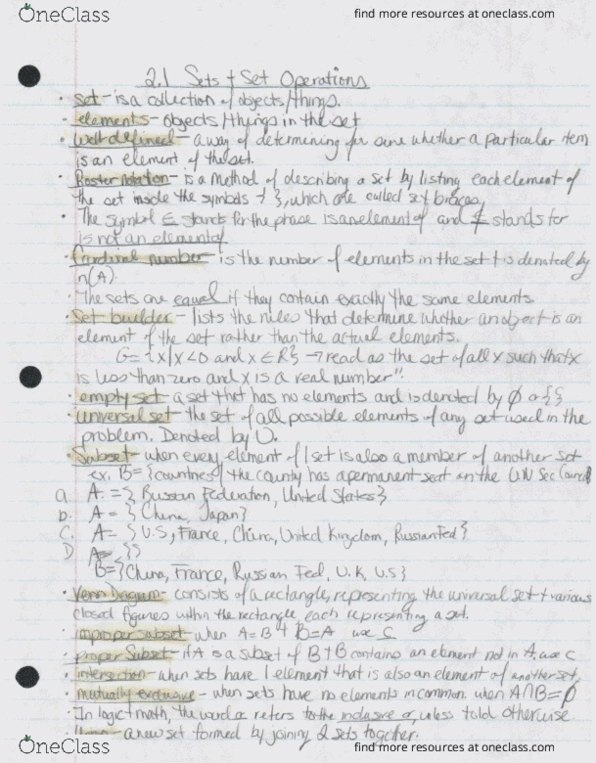 OneClass
find more resources at oneclass.com
2.1 Sets + Set Operations
• set - is a collection of objects/things.
• elements - objects/things in the set
• Well defined - a way of determining for sure whether a particular item
is an element of the set.
• Roster Notation - is a method of describing a set by listing each element of
the set inside the symbols { }, which are called set braces,
• The symbol ∈ stands for the phase is an element of and ∉ stands for
is not an element of
• Cardinal number is the number of elements in the set + is denoted by
n(A).
• The sets are equal if they contain exactly the same elements.
• Set builder - lists the rules that determine whether an object is an
element of the set rather than the actual elements.
G = {x|x<0 and x∈R} → read as the set of all x such that x
is less than zero and x is a real number".
• empty set - a set that has no elements and is denoted by ∅ or { }
• universal set - the set of all possible elements of any set used in the
problem. Denoted by U.
• Subset - when every element of 1 set is also a member of another set
ex. B = {countries of the county has a permanent seat on the UN Sec Council
a. A = { Russian Federation, United States}
b. A = { China, Japan}
C. A = { U.S, France, China, United Kingdom, Russian Fed}
D A = { }
B = {China, France, Russian Fed, U.K, U.S}
• Venn Diagram - consists of a rectangle, representing the universal set + various
closed figures within the rectangle each representing a set.
• improper subset - when A=B + B=A use ⊂
• proper Subset - if A is a subset of B + B contains an element not in A, use ⊂
• intersection - when sets have 1 element that is also an element of another set.
• mutually exclusive - when sets have no elements in common. when A∩B=∅
• In logic + math, the word or refers to the inclusive or, unless told otherwise
- a new set formed by joining 2 sets together.
OneClass
find more resources at oneclass.com